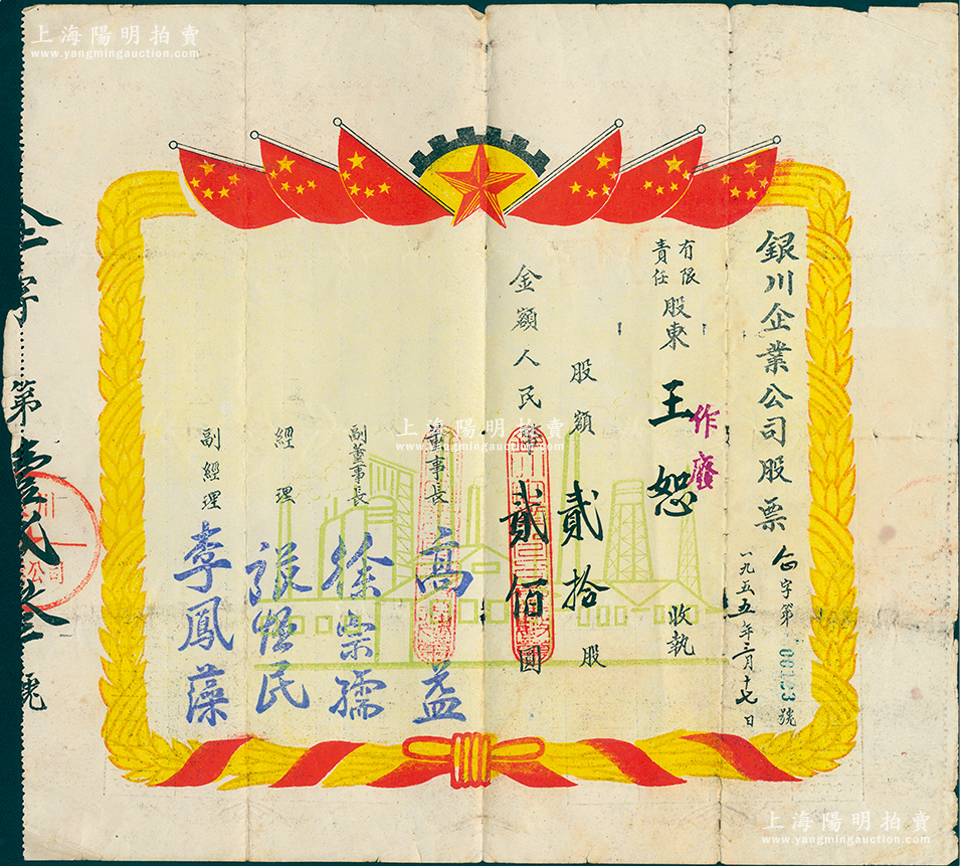 上海陽明拍賣
www.yangmingauction.com
銀川企業公司股票
企字第00123號
一九五五年三月十七日
作廢
有限責任股東 王恕 收執
股額 貳拾 股
金額人民幣 貳佰 圓
董事長 高益
副董事長 徐宗孺
經理 張悟民
副經理 李鳳藻
企字第壹貳叁號
公司
上海陽明拍賣
www.yangmingauction.com
上海陽明拍賣
www.yangmingauction.com